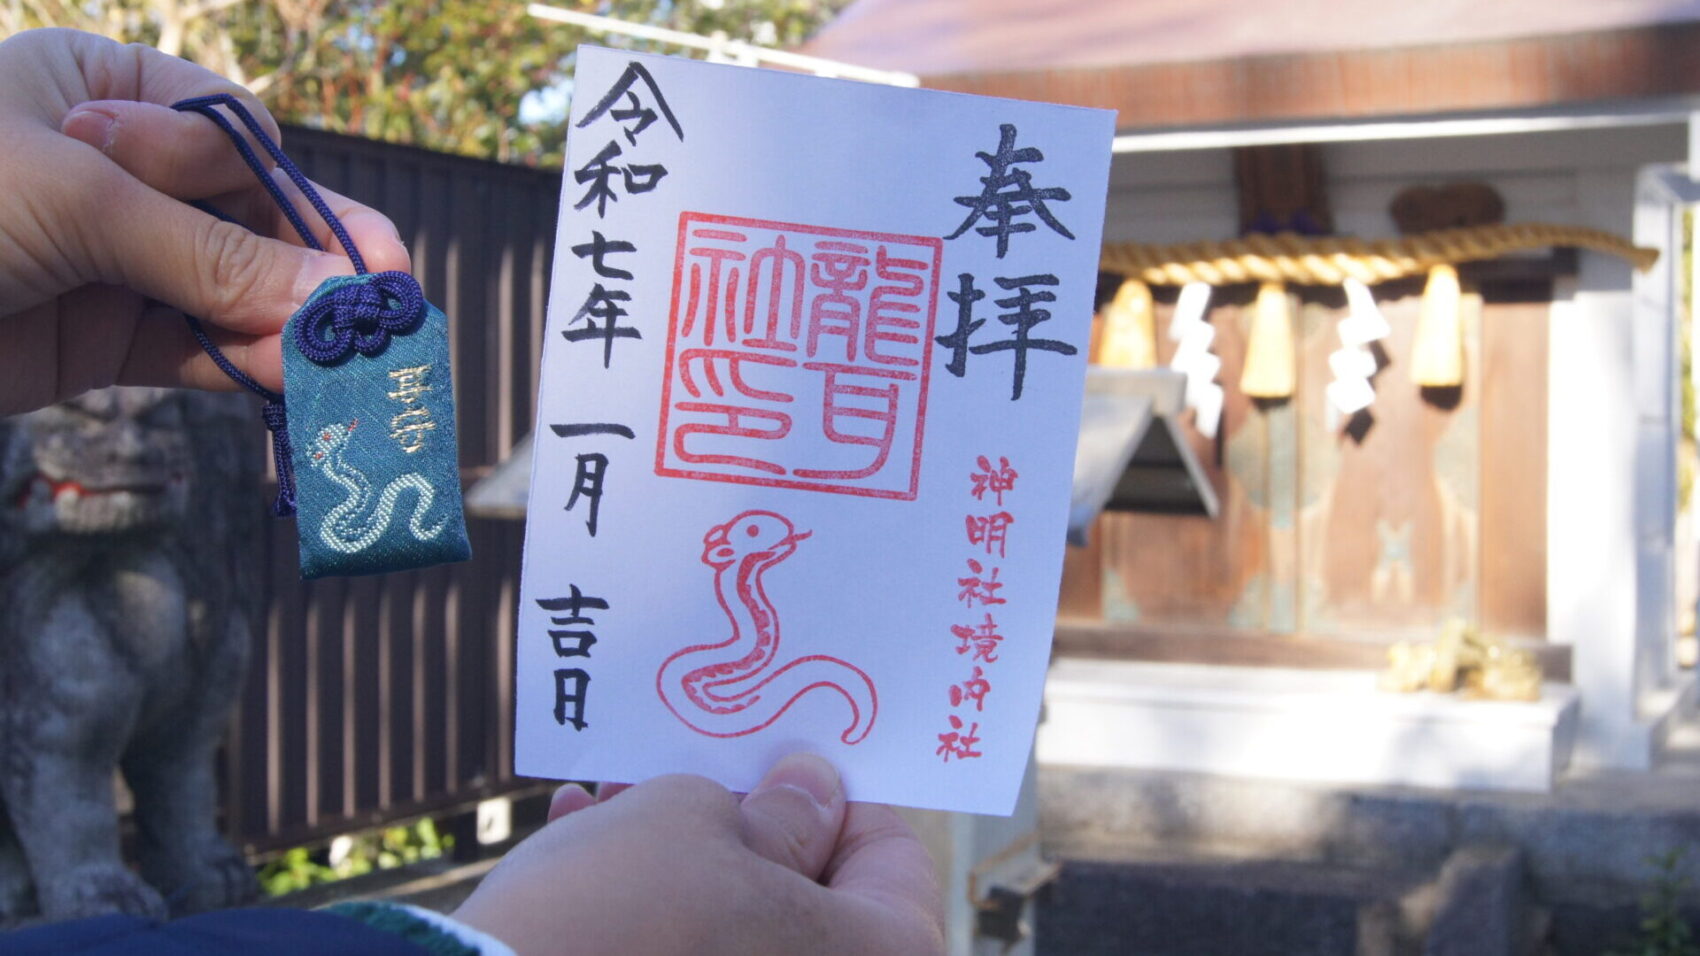 奉拝
神明社境内社
龍耳
社印
令和七年 一月 吉日
耳守